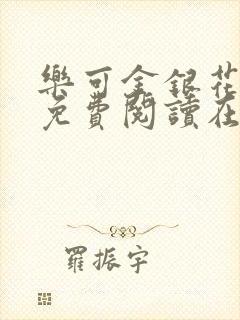 樂可金銀花
免費閱讀在
羅振宇